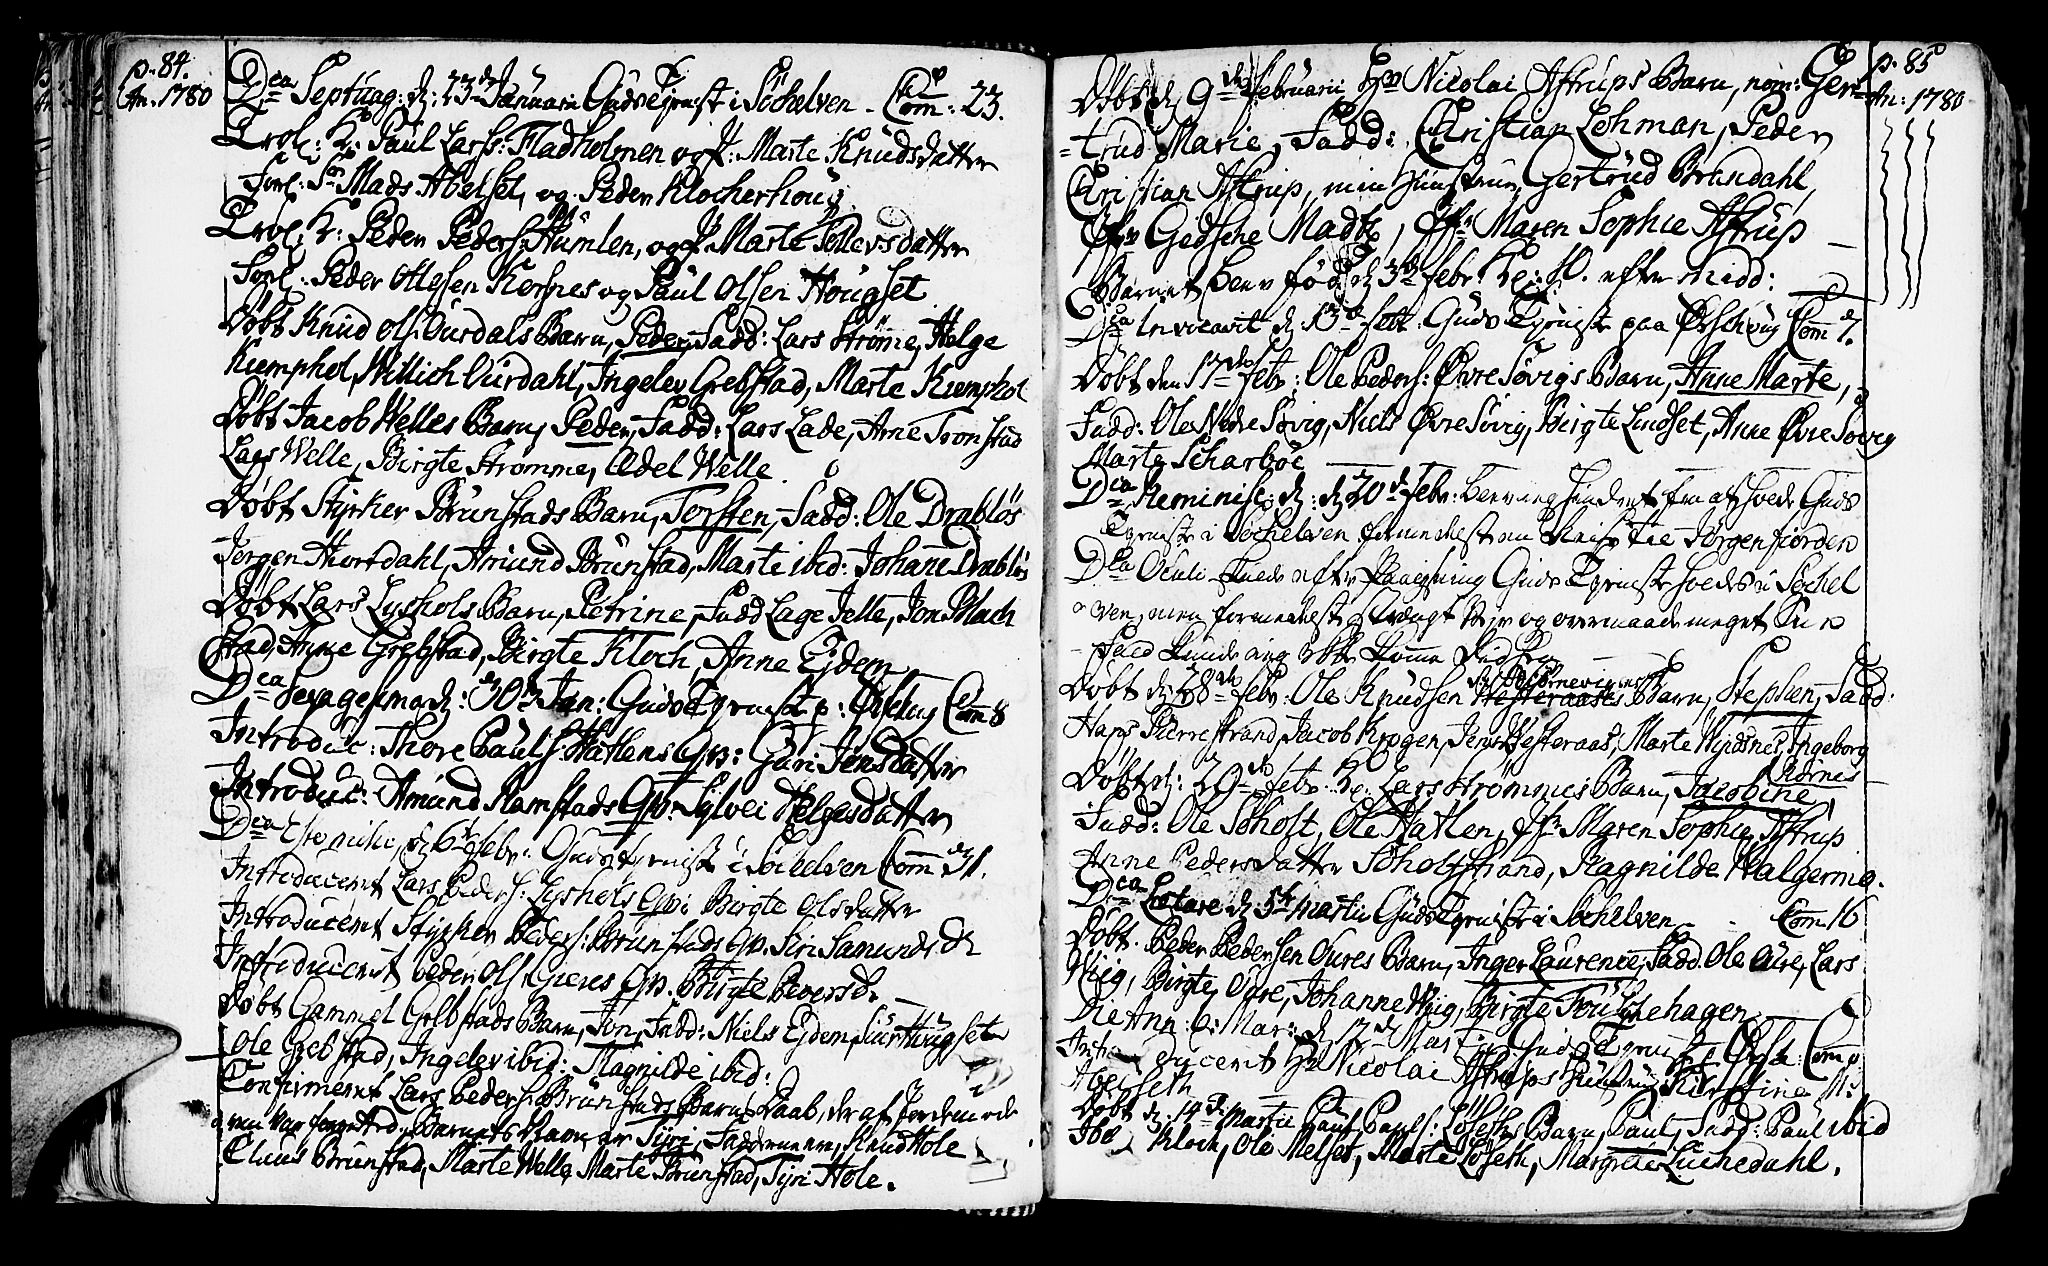 p. 84.
An: 1780
Dca Septuag: d: 23de Januarii Guds Tjeneste i Söchelven - Com: 23.
Trol: K: Paul Lars: Fladholmen og P: Marte Knudsdatter
Forl: Sr Mads Abelset, og Peder Klocherhoug
Trol: K: Peder Peders: Humlen, og P: Marte Sollevsdatter
Forl: Peder Ottesen Kersnes og Paul Olsen Hougset
Döbt Knud Ols: Ourdals Barn, Peder, Fadd: Lars Strömme, Helge
Kiemphol, Willich Ourdahl, Ingelev Grebstad, Marte Kiemphol
Döbt Jacob Welles Barn, Peder, Fadd: Lars Lade, Arne Tronstad
Lars Welle, Birgte Strömme, Ædel Welle
Döbt Styrker Brunstads Barn, Torsten, Fadd: Ole Drablös
Jörgen Hiortdahl, Amund Brunstad, Marte ibid: Johane Drablös
Döbt Lars Lyshols Barn, Petrine, Fadd Lage Jelle, Jon Blach
stad, Anne Grebstad, Birgte Kloch, Anne Ejdem
Dca Sexagesima d: 30te Jan: Guds Tjeneste p: Örschug Com 8
Introduc: Thore Pauls: Hatlens Qv: Guri Jensdatter
Introduc: Amund Ramstads Qv: Sylvei Helgesdatter
Dca Esto mihi, d 6te Febr: Guds Tjeneste i Söchelven Com 31.
Introduceret Lars Peders: Lyshols Qvi Birgte Olsdatter
Introduceret Styrker Peders: Brunstads Qv. Siri Samundsd
Introduceret Peder Ols: Gieres Qv. Birgte Peversd.
Döbt Gammel Grebstads Barn, Jon, Fadd: Niels Ejdem, Siur Hougset
Ole Grebstad, Ingelev ibid: Magnilde ibid:
Confirmeret Lars Peders: Brunstads Barns Daab, der af Jordemode
ren var forrettet. Barnets Navn er Syri, Fadderne ere, Knud Hole
Claus Brunstad, Marte Welle, Marte Brunstad, Syri Hole.
p. 85
An: 1780
Döbt d. 9de Februarii Hr Nicolai Astrups Barn, nom: Ger-
=trud Marie, Fadd: Christian Lohman, Peder
Christian Astrup, min Hustrue, Gertrud Brandahl,
Gedsche Madtz, Jfr Maren Sophie Astrup
Barnet blev föd d 3de Febr Kl: 10. efter Midd:
Dca Invocavit d 13de Febr: Guds Tjeneste paa Örschoug Com 7.
Döbt den 17de Febr: Ole Peders: Övre Sövigs Barn, Anne Marte,
Fadd: Ole Nedre Sövig, Niels Övre Sövig, Birgte Lindset, Anne Övre Sövig
Marte Scharböe
Dca Reminisc: d: 20de Febr: blev ieg hindret fra at holde Guds
Tjeneste i Söchelven formedelst en Reise til Jörgenfiorden
Dca Oculi skulde efter Paaviisning Guds Tjeneste holdes i Söchel
ven, men formedelst strængt Vejr og overmaade meget Snee
- fald kunde ieg ikke komme did hen
Döbt d. 28de Febr: Ole Knudsen Westeraases Barn, Stephen, Fadd:
Hans Pierrestrand, Jacob Krogen, Jens Westeraas, Marte Wijdsnes, Ingeborg
Riörnes
Döbt d: 29de Febr: K: Lars Strömmes Barn, Jacobine,
Fadd: Ole Soholt, Ole Hatlen, Jfr Maren Sophie Astrup
Anne Pedersdatter Soholtstrand, Ragnilde Walgermo.
Dca Lætare d 5te Martii Guds Tjeneste i Söchelven - Com 16
Döbt. Peder Pedersen Oures Barn, Inger Laurence, Fadd. Ole Oure, Lars
Wiig, Birgte Oure, Johanne Wiig, Birgte Foultzehagen
Die Ann: B: Mar: d 12te Martii Guds Tjeneste Com
Introduceret Hr Nicolai Astrups Hustrue Kirstine M:
Abelseth
Döbt d. 14de Martii Paul Pauls: Löseths Barn, Paul, Fadd: Paul ibid
Kloch, Ole Melset, Marte Löseth, Margrete Luchedahl.